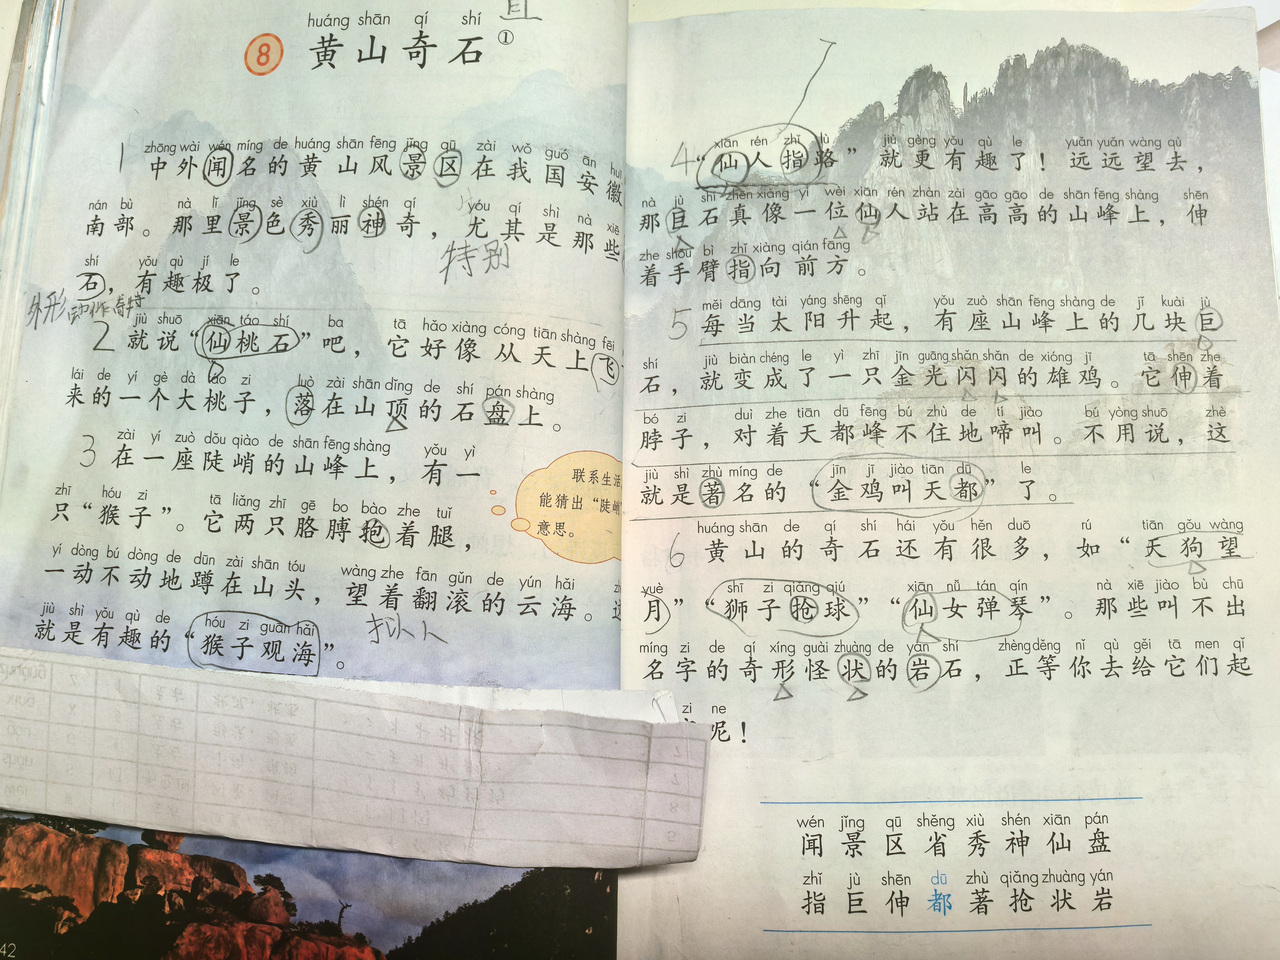 huáng shān qí shí
8 黄山奇石①
zhōng wài wén míng de huáng shān fēng jǐng qū zài wǒ guó ān huī
1 中外闻名的黄山风景区在我国安徽
nán bù nà lǐ jǐng sè xiù lì shén qí yóu qí shì nà xiē
南部。那里景色秀丽神奇，尤其是那些
特别
shí yǒu qù jí le
石，有趣极了。
外形
jiù shuō xiān táo shí ba tā hǎo xiàng cóng tiān shàng fēi
2 就说“仙桃石”吧，它好像从天上飞
lái de yí gè dà táo zi luò zài shān dǐng de shí pán shàng
来的一个大桃子，落在山顶的石盘上。
zài yí zuò dǒu qiào de shān fēng shàng yǒu yì
3 在一座陡峭的山峰上，有一
zhī hóu zi tā liǎng zhī gē bo bào zhe tuǐ
只“猴子”。它两只胳膊抱着腿，
yí dòng bú dòng de dūn zài shān tóu wàng zhe fān gǔn de yún hǎi
一动不动地蹲在山头，望着翻滚的云海。这
jiù shì yǒu qù de hóu zi guān hǎi
就是有趣的“猴子观海”。
联系生活
能猜出“陡峭
意思。
42
xiān rén zhǐ lù jiù gèng yǒu qù le yuǎn yuǎn wàng qù
4 “仙人指路”就更有趣了！远远望去，
nà jù shí zhēn xiàng yí wèi xiān rén zhàn zài gāo gāo de shān fēng shàng shēn
那巨石真像一位仙人站在高高的山峰上，伸
zhe shǒu bì zhǐ xiàng qián fāng
着手臂指向前方。
měi dāng tài yáng shēng qǐ yǒu zuò shān fēng shàng de jǐ kuài jù
5 每当太阳升起，有座山峰上的几块巨
shí jiù biàn chéng le yì zhī jīn guāng shǎn shǎn de xióng jī tā shēn zhe
石，就变成了一只金光闪闪的雄鸡。它伸着
bó zi duì zhe tiān dū fēng bú zhù de tí jiào bú yòng shuō zhè
脖子，对着天都峰不住地啼叫。不用说，这
jiù shì zhù míng de jīn jī jiào tiān dū le
就是著名的“金鸡叫天都”了。
huáng shān de qí shí hái yǒu hěn duō rú tiān gǒu wàng
6 黄山的奇石还有很多，如“天狗望
yuè shī zi qiǎng qiú xiān nǚ tán qín nà xiē jiào bù chū
月”“狮子抢球”“仙女弹琴”。那些叫不出
míng zi de qí xíng guài zhuàng de yán shí zhèng děng nǐ qù gěi tā men qǐ
名字的奇形怪状的岩石，正等你去给它们起
zi ne
呢！
wén jǐng qū shěng xiù shén xiān pán
闻景区省秀神仙盘
zhǐ jù shēn dū zhù qiǎng zhuàng yán
指巨伸都著抢状岩